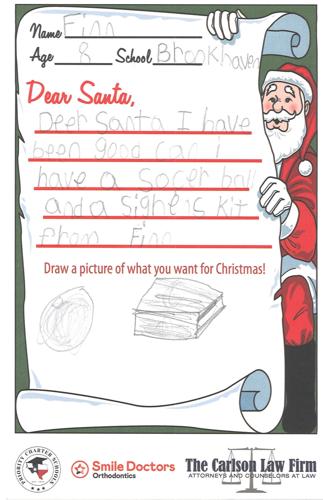 Name Finn
Age 8 School Brookhaven
Dear Santa,
Deer Santa I have
been good can i
have a socer ball
and a sighenc kit
from Finn
Draw a picture of what you want for Christmas!
PRIORITY CHARTER SCHOOLS
Smile Doctors
Orthodontics
The Carlson Law Firm
ATTORNEYS AND COUNSELORS AT LAW